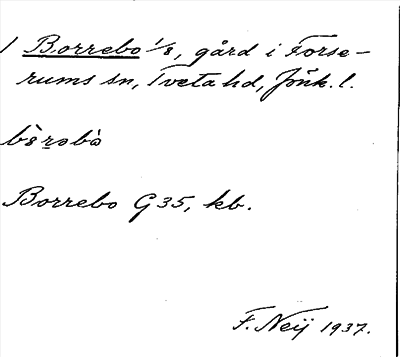 / Borrebo 1/8, gård i Forse-
rums sn, Tveta hd, Jönk. l.
Borrebo G 35, kb.
F. Neij 1937.